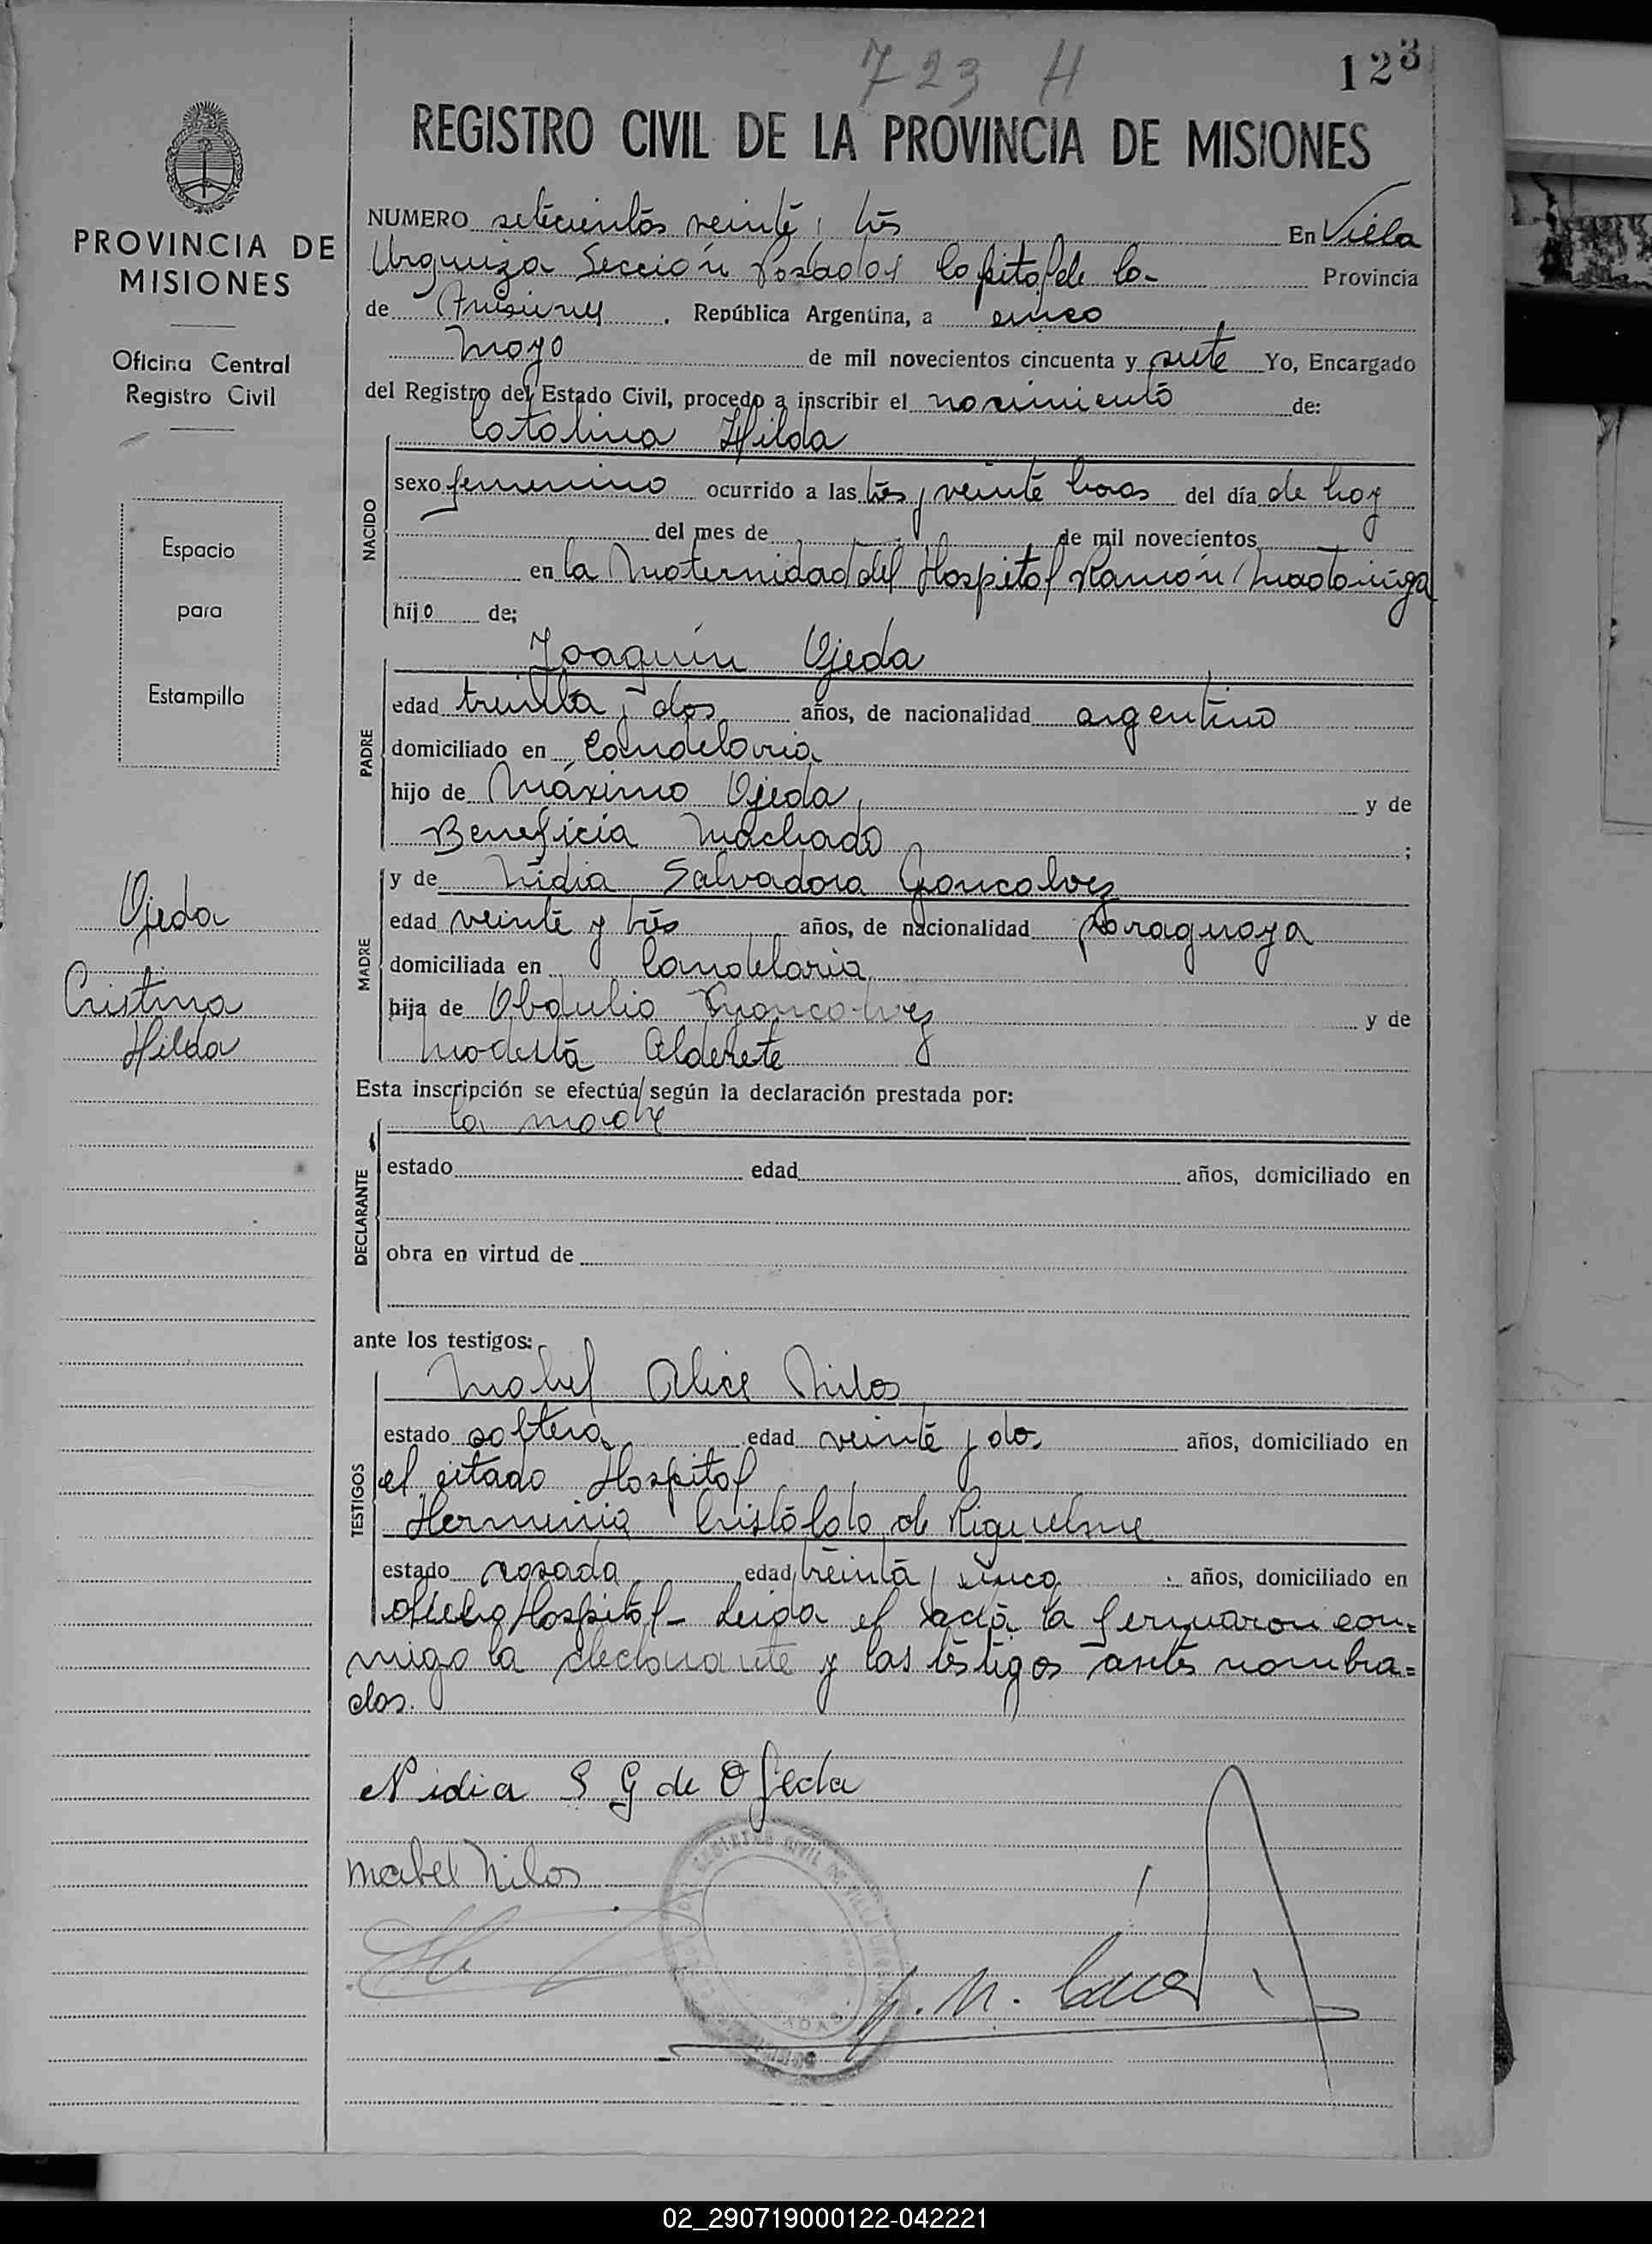 723 H
123
REGISTRO CIVIL DE LA PROVINCIA DE MISIONES
PROVINCIA DE
MISIONES
Oficina Central
Registro Civil
Espacio
para
Estampilla
Ojeda
Cristina
Hilda
NUMERO setecientos veinte y tres En Villa
Urquiza Sección Posadas Capital de la Provincia
de Misiones . República Argentina, a cinco
Mayo de mil novecientos cincuenta y siete Yo, Encargado
del Registro del Estado Civil, procedo a inscribir el nacimiento de:
Catalina Hilda
NACIDO
sexo femenino ocurrido a las tres y veinte horas del día de hoy
del mes de de mil novecientos
en la Maternidad del Hospital Ramón Madariaga
hijo de;
Joaquín Ojeda
PADRE
edad treinta y dos años, de nacionalidad argentino
domiciliado en Candelaria
hijo de Máximo Ojeda y de
Beneficia Machado ;
y de Nidia Salvadora Goncalvez
MADRE
edad veinte y tres años, de nacionalidad Paraguaya
domiciliada en Candelaria
hija de Obdulio Goncalvez y de
Modesta Alderete
Esta inscripción se efectúa según la declaración prestada por:
la madre
DECLARANTE
estado edad años, domiciliado en
obra en virtud de
ante los testigos:
Mabel Alice Nilos
TESTIGOS
estado soltera edad veinte y dos años, domiciliado en
el citado Hospital
Herminia Cristófolo de Riquelme
estado casada edad treinta y cinco años, domiciliado en
dicho Hospital - Leida el acta la firmaron con=
migo la declarante y las testigos antes nombra=
dos.
Nidia S G de Ojeda
Mabel Nilos
02_290719000122-042221